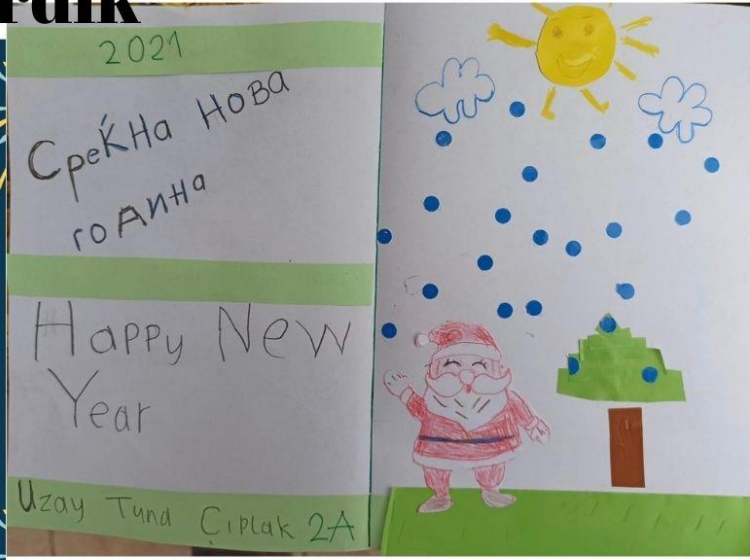 2021
Среќна Нова
година
Happy New
Year
Uzay Tuna Çıplak 2A